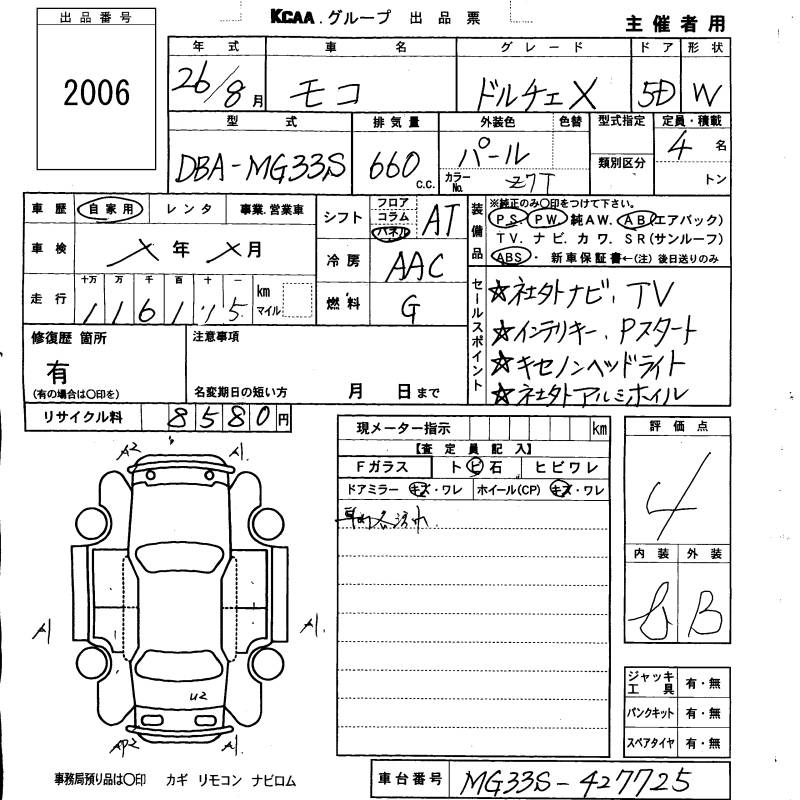 KCAA.グループ 出品票
主催者用
出品番号
2006
年式 車名 グレード ドア 形状
26/8月 モコ ドルチェX 5D W
型式 排気量 外装色 色替 型式指定 定員・積載
DBA-MG33S 660 c.c. パール カラーNo. Z7T 類別区分 4名 トン
車歴 自家用 レンタ 事業.営業車
車検 メ年メ月
走行 十万 万 千 百 十 一 km マイル
116115
シフト フロア コラム パネル AT
冷房 AAC
燃料 G
装備品
※純正のみ〇印をつけて下さい。
PS. PW. 純AW. AB(エアバック)
TV. ナビ. カワ. SR(サンルーフ)
ABS・ 新車保証書←(注) 後日送りのみ
セールスポイント
☆社外ナビ、TV
☆インテリキー、Pスタート
☆キセノンヘッドライト
☆社外アルミホイル
修復歴 箇所
有
(有の場合は〇印を)
注意事項
名変期日の短い方 月 日まで
リサイクル料 8580円
現メーター指示 km
【査定員記入】
Fガラス ト ビ 石 ヒビワレ
ドアミラー キズ・ワレ ホイール(CP) キズ・ワレ
評価点
4
内装 外装
B
A2 A1.
A1 A1.
U2
AP2 A1.
ジャッキ工具 有・無
パンクキット 有・無
スペアタイヤ 有・無
事務局預り品は〇印 カギ リモコン ナビロム
車台番号 MG33S-427725